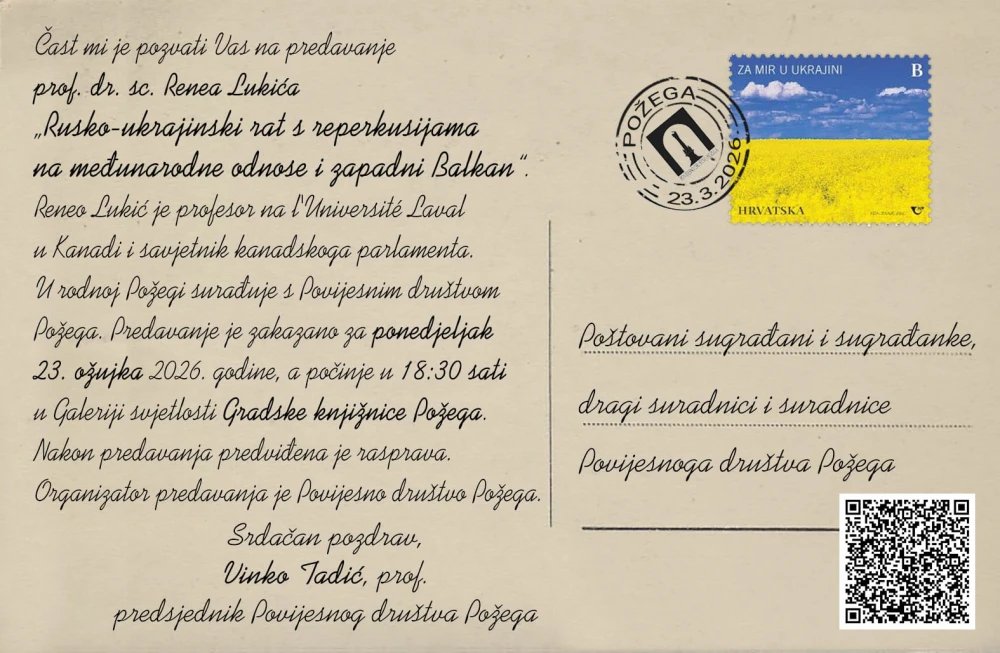 Čast mi je pozvati Vas na predavanje
prof. dr. sc. Renea Lukića
„Rusko-ukrajinski rat s reperkusijama
na međunarodne odnose i zapadni Balkan“.
Reneo Lukić je profesor na l'Université Laval
u Kanadi i savjetnik kanadskoga parlamenta.
U rodnoj Požegi surađuje s Povijesnim društvom
Požega. Predavanje je zakazano za ponedjeljak
23. ožujka 2026. godine, a počinje u 18:30 sati
u Galeriji svjetlosti Gradske knjižnice Požega.
Nakon predavanja predviđena je rasprava.
Organizator predavanja je Povijesno društvo Požega.
Srdačan pozdrav,
Vinko Tadić, prof.
predsjednik Povijesnog društva Požega
POŽEGA
23.3.2026
ZA MIR U UKRAJINI B
HRVATSKA
Poštovani sugrađani i sugrađanke,
dragi suradnici i suradnice
Povijesnoga društva Požega